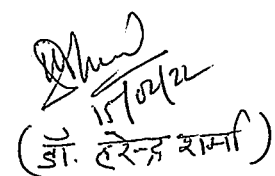 15/02/22
(डॉ. हरेन्द्र शर्मा)